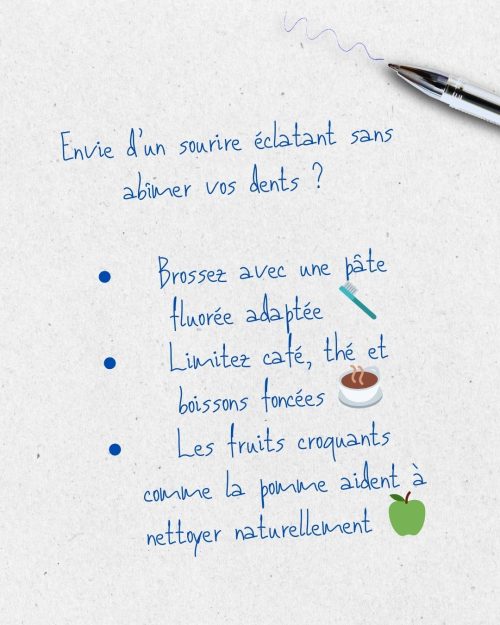 Envie d'un sourire éclatant sans
abîmer vos dents ?
• Brossez avec une pâte
fluorée adaptée
• Limitez café, thé et
boissons foncées
• Les fruits croquants
comme la pomme aident à
nettoyer naturellement